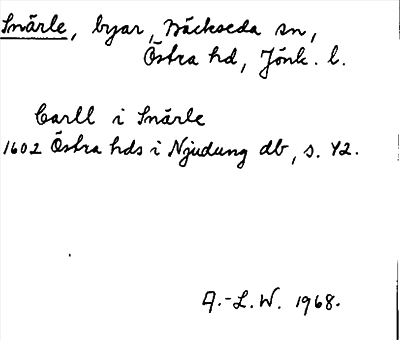 Snärle, byar, Bäckseda sn,
Östra hd, Jönk. l.
Carll i Snärle
1602 Östra hds i Njudung db, s. 42.
A.-L.W. 1968.